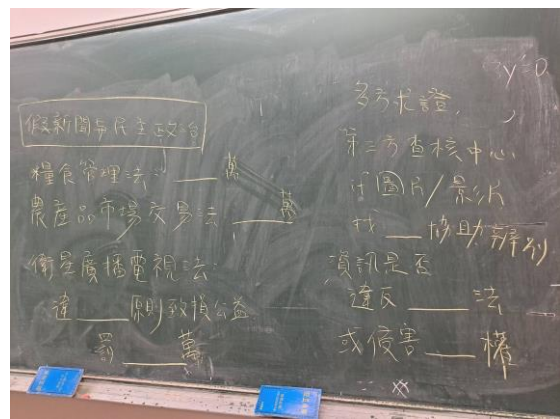 假新聞與民主政治
糧食管理法: ___ 萬
農產品市場交易法 ___ 萬
衛星廣播電視法:
違 ___ 原則致損公益
罰 ___ 萬
y=0
多方求證,
第三方查核中心
if 圖片/影片
找 ___ 協助辨別
資訊是否
違反 ___ 法
或侵害 ___ 權